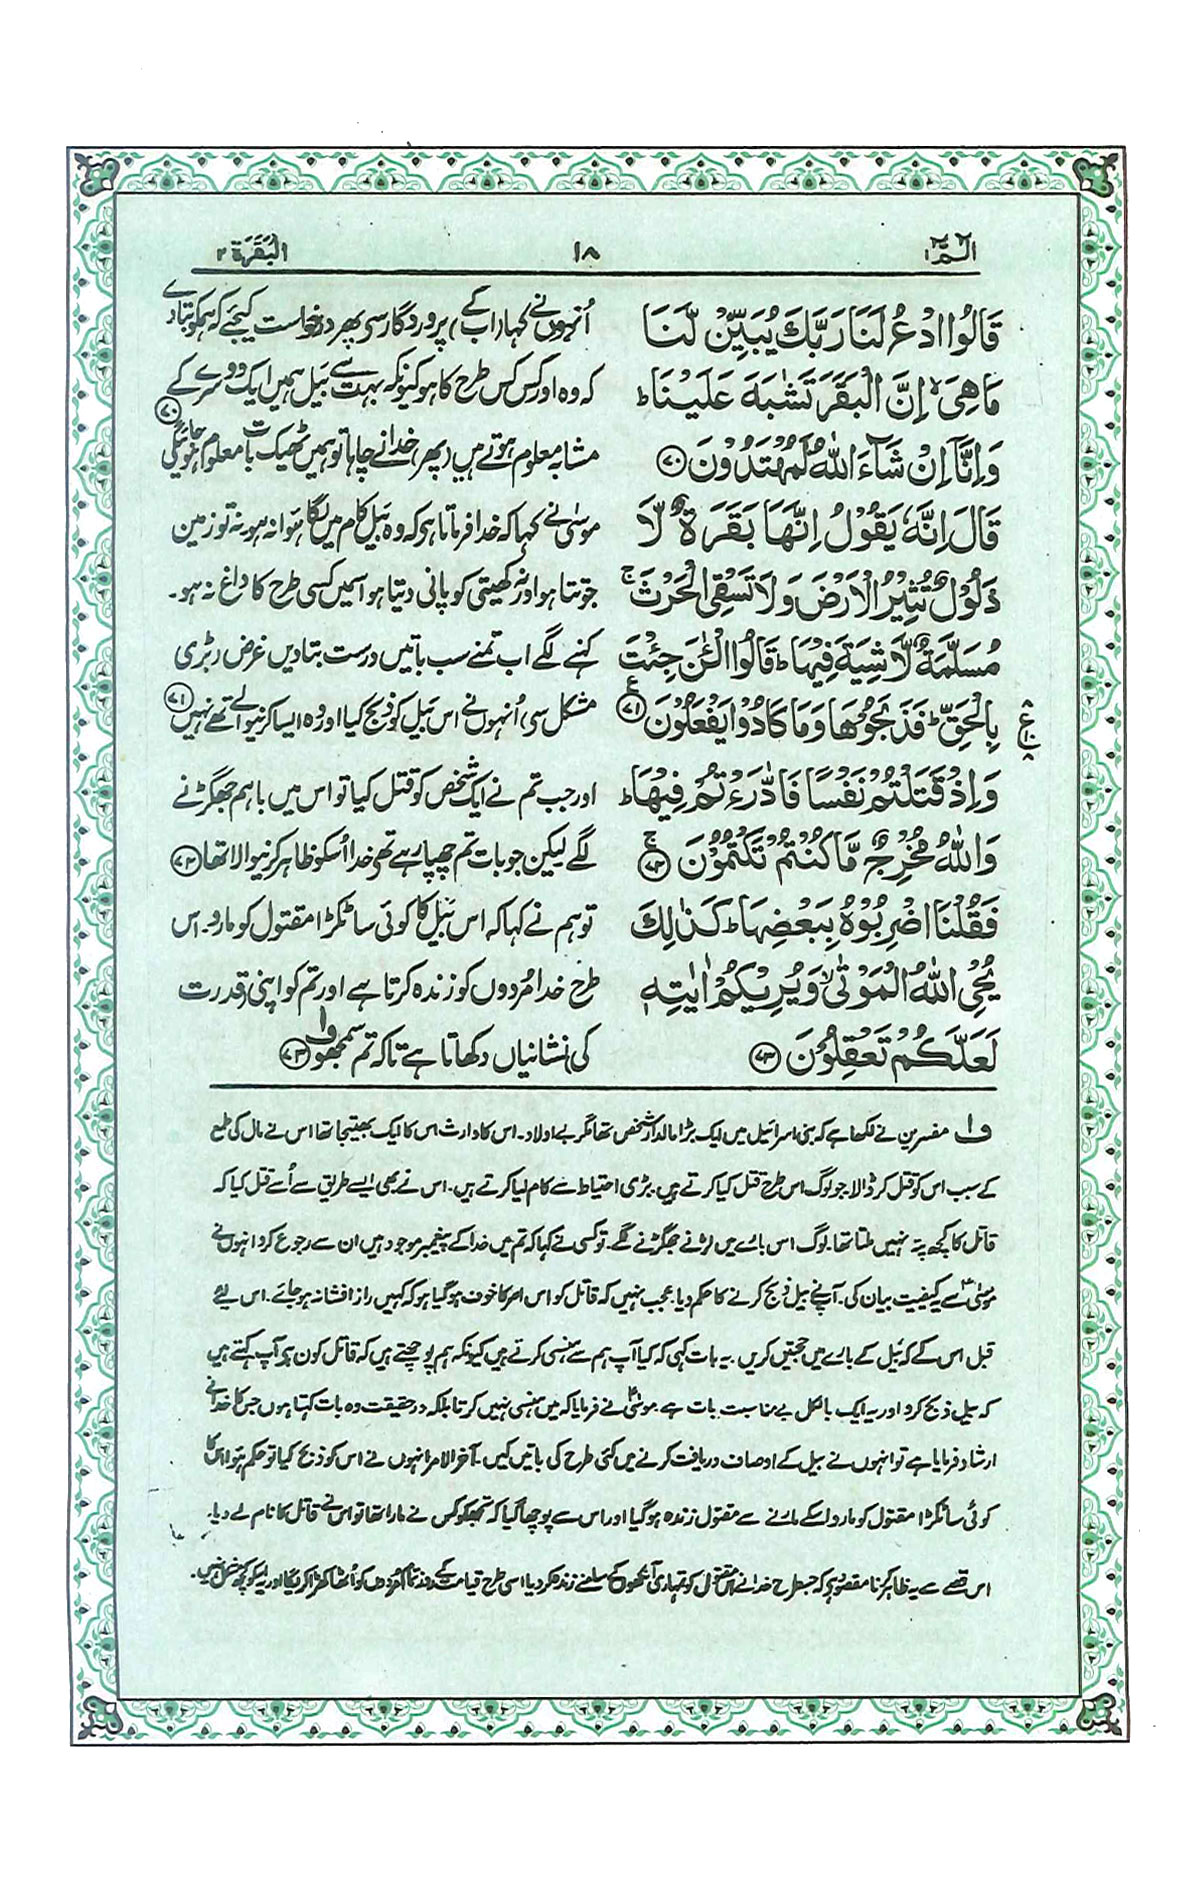 الٓمّٓ ١
١٨
البَقَرَة ٢
قَالُوا ادْعُ لَنَا رَبَّكَ يُبَيِّنْ لَّنَا
مَا هِيَ ۙ اِنَّ الْبَقَرَ تَشٰبَهَ عَلَيْنَا ؕ
وَاِنَّآ اِنْ شَآءَ اللّٰهُ لَمُهْتَدُوْنَ ﴿۷۰﴾
قَالَ اِنَّهٗ يَقُوْلُ اِنَّهَا بَقَرَةٌ لَّا
ذَلُوْلٌ تُثِيْرُ الْاَرْضَ وَلَا تَسْقِى الْحَرْثَ ۚ
مُسَلَّمَةٌ لَّا شِيَةَ فِيْهَا ؕ قَالُوا الْـٰٔنَ جِئْتَ
بِالْحَقِّ ؕ فَذَبَحُوْهَا وَمَا كَادُوْا يَفْعَلُوْنَ ﴿۷۱﴾ ع
وَاِذْ قَتَلْتُمْ نَفْسًا فَادّٰرَءْتُمْ فِيْهَا ؕ
وَاللّٰهُ مُخْرِجٌ مَّا كُنْتُمْ تَكْتُمُوْنَ ﴿۷۲﴾ ۚ
فَقُلْنَا اضْرِبُوْهُ بِبَعْضِهَا ؕ كَذٰلِكَ
يُحْيِ اللّٰهُ الْمَوْتٰى ۙ وَيُرِيْكُمْ اٰيٰتِهٖ
لَعَلَّكُمْ تَعْقِلُوْنَ ﴿۷۳﴾
اُنہوں نے کہا (اب کے) پروردگار سی پھر درخواست کیجئے کہ ہمکو بتا دے
کہ وہ اور کس کس طرح کا ہو کیونکہ بہت سے بیل ہمیں ایک دوسرے کے
مشابہ معلوم ہوتے ہیں (پھر) خدا نے چاہا تو ہمیں ٹھیک بات معلوم ہو جائیگی ﴿۷۰﴾
موسیٰ نے کہا کہ خدا فرماتا ہے کہ وہ بیل کام میں لگا ہوا نہ ہو نہ تو زمین
جوتتا ہو اور نہ کھیتی کو پانی دیتا ہو اسمیں کسی طرح کا داغ نہ ہو۔
کہنے لگے اب تمنے سب باتیں درست بتا دیں غرض (بڑی
مشکل سی) اُنہوں نے اس بیل کو ذبح کیا اور وہ ایسا کرنیوالے تھے نہیں ﴿۷۱﴾
اور جب تم نے ایک شخص کو قتل کیا تو اس میں باہم جھگڑنے
لگے لیکن جو بات تم چھپا رہے تھے خدا اُسکو ظاہر کرنیوالا تھا ﴿۷۲﴾
تو ہم نے کہا کہ اس بیل کا کوئی سا ٹکڑا مقتول کو مارو۔ اس
طرح خدا مُردوں کو زندہ کرتا ہے اور تم کو اپنی (قدرت
کی) نشانیاں دکھاتا ہے تاکہ تم سمجھو ف۱ ﴿۷۳﴾
ف۱ مفسرین نے لکھا ہے کہ بنی اسرائیل میں ایک بڑا مالدار شخص تھا مگر بے اولاد۔ اس کا وارث اس کا ایک بھتیجا تھا اس نے مال کی طمع
کے سبب اس کو قتل کر ڈالا جو لوگ اس طرح قتل کیا کرتے ہیں بڑی احتیاط سے کام لیا کرتے ہیں۔ اس نے بھی ایسے طریق سے اُسے قتل کیا کہ
قاتل کا کچھ پتہ نہیں ملتا تھا۔ لوگ اس بارے میں لڑنے جھگڑنے لگے۔ تو کسی نے کہا کہ تم میں خدا کے پیغمبر موجود ہیں ان سے رجوع کرو انہوں نے
موسیٰؑ سے یہ کیفیت بیان کی۔ آپ نے بیل ذبح کرنے کا حکم دیا۔ عجب نہیں کہ قاتل کو اس امر کا خوف ہو گیا ہو کہ کہیں راز افشا نہ ہو جائے۔ اس لئے
قبل اس کے کہ بیل کے بارے میں حجتیں کریں۔ یہ بات کہی کہ کیا آپ ہم سے ہنسی کرتے ہیں کیونکہ ہم پوچھتے ہیں کہ قاتل کون ہے آپ کہتے ہیں
کہ بیل ذبح کرو اور یہ ایک بالکل بے مناسبت بات ہے موسیٰؑ نے فرمایا کہ میں ہنسی نہیں کرتا بلکہ در حقیقت وہ بات کہتا ہوں جس کا خدا نے
ارشاد فرمایا ہے تو انہوں نے بیل کے اوصاف دریافت کرنے میں کئی طرح کی باتیں کیں۔ آخر الامر انہوں نے اس کو ذبح کیا تو حکم ہوا اس کا
کوئی سا ٹکڑا مقتول کو مارو اسکے مارنے سے مقتول زندہ ہو گیا اور اس سے پوچھا گیا کہ تجھکو کس نے مارا تھا تو اس نے قاتل کا نام لے دیا۔
اس قصے سے یہ ظاہر کرنا مقصود ہے کہ جسطرح خدا نے اس مقتول کو تمہاری آنکھوں کے سامنے زندہ کر دیا اسی طرح قیامت کے دن تمام مُردوں کو اُٹھا کھڑا کریگا اور یہ اسکو کچھ مشکل نہیں۔